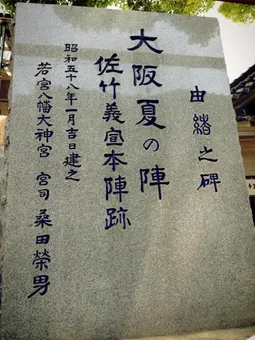 由緒之碑
大阪夏の陣
佐竹義宣本陣跡
昭和五十八年一月吉日建之
若宮八幡大神宮 宮司 桑田榮男